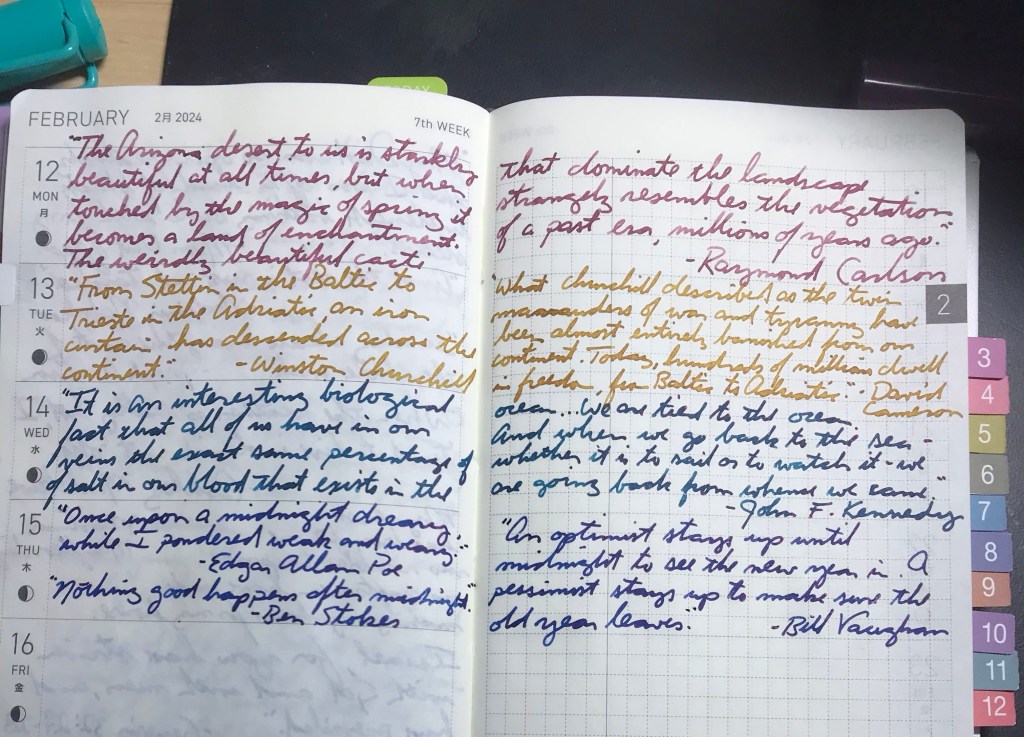 TODAY
FEBRUARY 2月 2024 7th WEEK
12
MON
月
"The Arizona desert to us is starkly
beautiful at all times, but when
touched by the magic of spring it
becomes a land of enchantment.
The weirdly beautiful cacti
13
TUE
火
"From Stettin in the Baltic to
Trieste in the Adriatic, an iron
curtain has descended across the
continent." -Winston Churchill
14
WED
水
"It is an interesting biological
fact that all of us have in our
veins the exact same percentage of
of salt in our blood that exists in the
15
THU
木
"Once upon a midnight dreary,
while I pondered weak and weary."
-Edgar Allan Poe
"Nothing good happens after midnight."
-Ben Stokes
16
FRI
金
that dominate the landscape
strangely resembles the vegetation
of a past era, millions of years ago."
-Raymond Carlson
"What Churchill described as the twin
marauders of war and tyranny have
been almost entirely banished from our
continent. Today, hundreds of millions dwell
in freedom, from Baltic to Adriatic." -David
Cameron
ocean... We are tied to the ocean.
And when we go back to the sea -
whether it is to sail or to watch it - we
are going back from whence we came."
-John F. Kennedy
"An optimist stays up until
midnight to see the new year in. A
pessimist stays up to make sure the
old year leaves." -Bill Vaughan
2
3
4
5
6
7
8
9
10
11
12